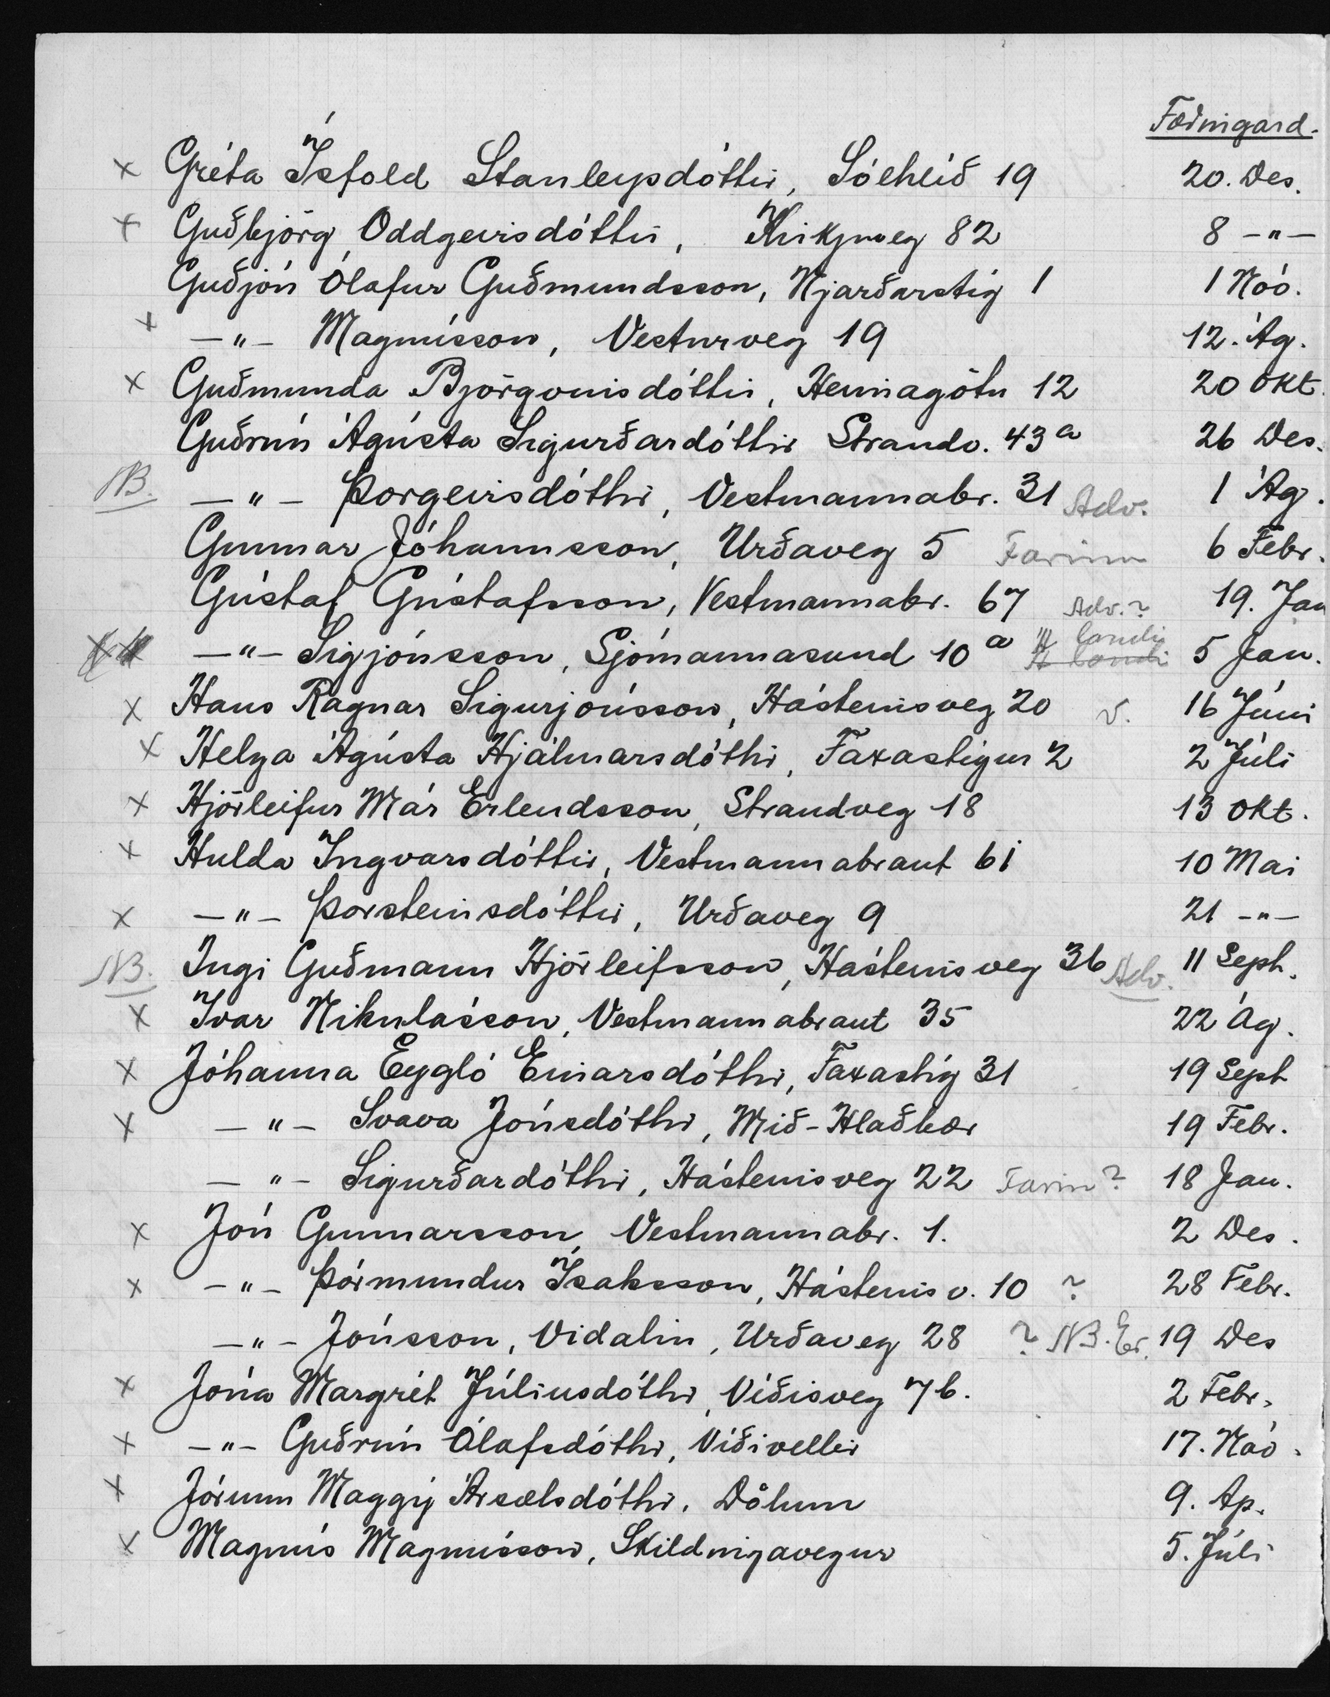 Fæðingard.
x Gréta Ísfold Stanleysdóttir, Sólhlíð 19 20. Des.
x Guðbjörg Oddgeirsdóttir, Kirkjuveg 82 8 -"-
Guðjón Ólafur Guðmundsson, Njarðarstíg 1 1 Nóv.
x -"- Magnússon, Vesturveg 19 12. Ág.
x Guðmunda Björgvinsdóttir, Heimagötu 12 20 Okt.
Guðrún Ágústa Sigurðardóttir Strandv. 43a 26 Des.
NB. -"- Þorgeirsdóttir, Vestmannabr. 31 Adv. 1 Ág.
Gunnar Jóhannsson, Urðaveg 5 Farinn 6 Febr.
Gústaf Gústafsson, Vestmannabr. 67 Adv.? 19. Jan
-"- Sigjónsson, Sjómannasund 10a landi 5 Jan.
x Hans Ragnar Sigurjónsson, Hásteinsveg 20 v. 16 Júni
x Helga Ágústa Hjálmarsdóttir, Faxastígur 2 2 Júli
x Hjörleifur Már Erlendsson, Strandveg 18 13 Okt.
x Hulda Ingvarsdóttir, Vestmannabraut 61 10 Mai
x -"- Þorsteinsdóttir, Urðaveg 9 21 -"-
NB. Ingi Guðmann Hjörleifsson, Hásteinsveg 36 Adv. 11 Sept.
x Ivar Nikulásson, Vestmannabraut 35 22 Ág.
x Jóhanna Eygló Einarsdóttir, Faxastíg 31 19 Sept
x -"- Svava Jónsdóttir, Mið-Hlaðbær 19 Febr.
-"- Sigurðardóttir, Hásteinsveg 22 Farin? 18 Jan.
x Jón Gunnarsson, Vestmannabr. 1. 2 Des.
x -"- Þórmundur Ísaksson, Hásteinsv. 10 ? 28 Febr.
-"- Jónsson, Vidalin, Urðaveg 28 ? NB. Er. 19 Des
x Jóna Margrét Júlíusdóttir, Víðisveg 7b. 2 Febr.
x -"- Guðrún Ólafsdóttir, Víðivellir 17. Nóv.
x Jórunn Maggý Ársælsdóttir. Dölum 9. Ap.
x Magnús Magnússon, Skildingavegur 5. Júli